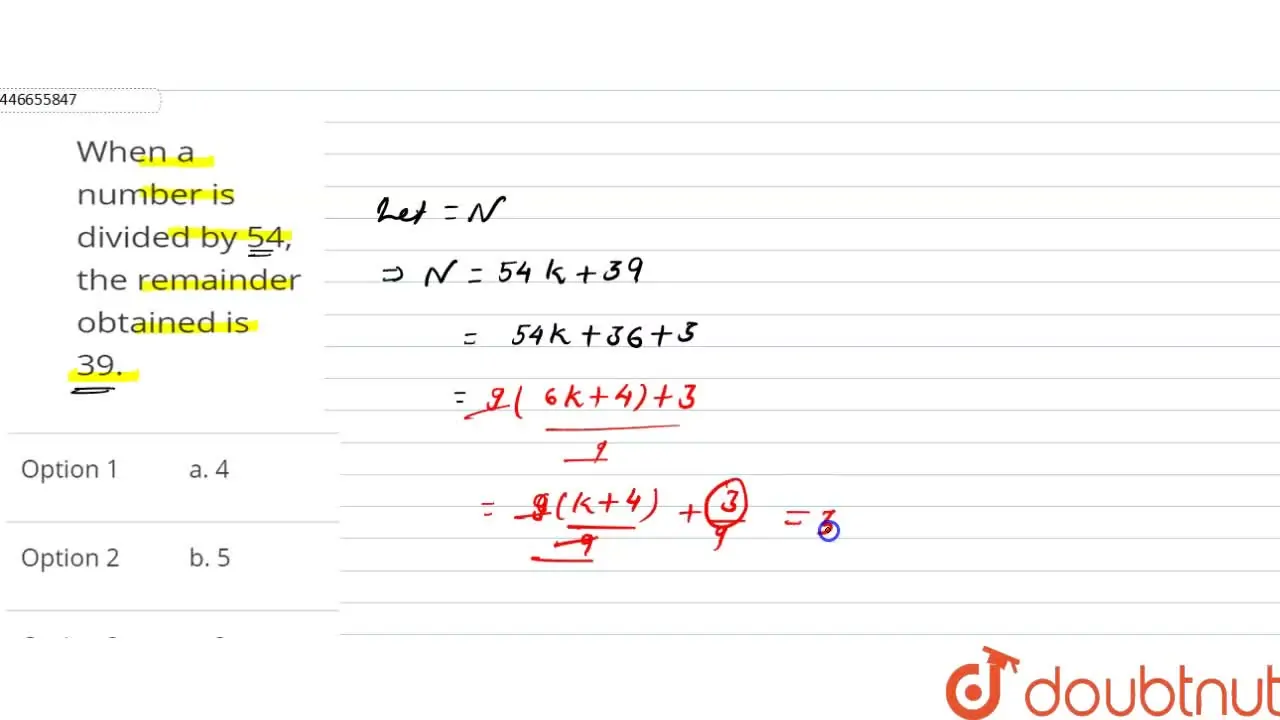 446655847
When a
number is
divided by 54,
the remainder
obtained is
39.
Option 1 a. 4
Option 2 b. 5
Let = N
⇒ N = 54k + 39
= 54k + 36 + 3
= 9( 6k + 4) + 3
9
= 9(k + 4) + 3 = 3
9 9
doubtnut